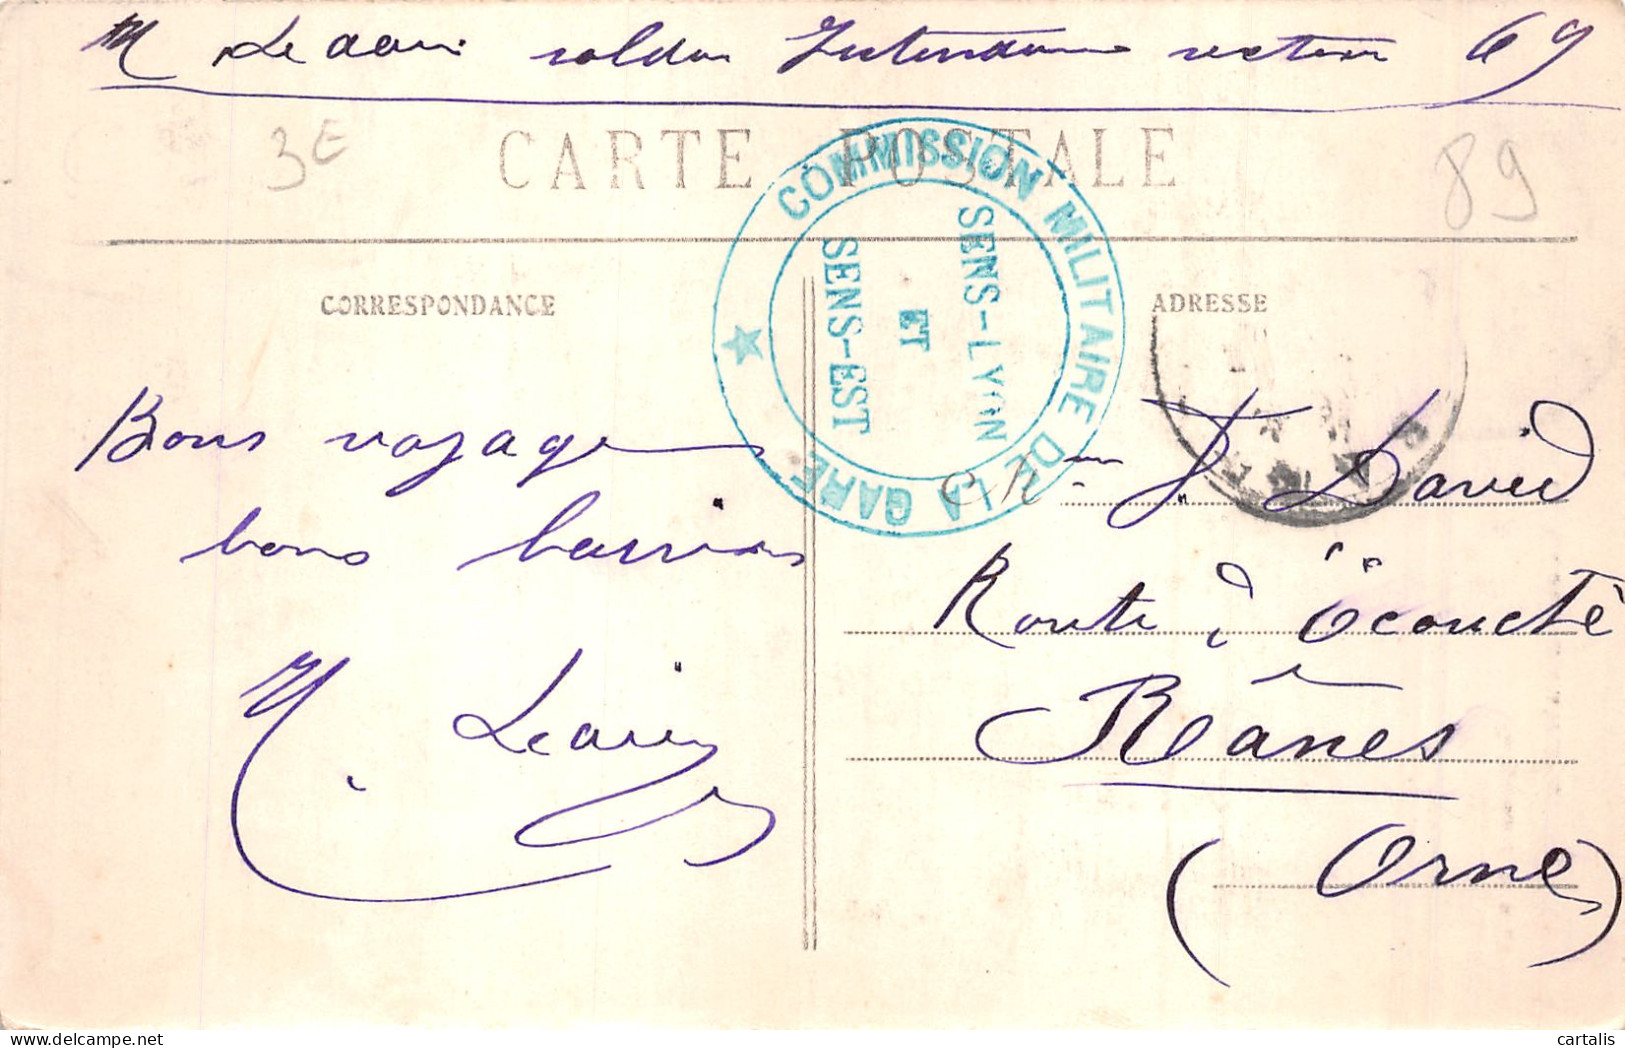 M soldat Intendance secteur 69
3E
CARTE POSTALE
89
COMMISSION MILITAIRE DE LA GARE
SENS-LYON
ET
SENS-EST
CORRESPONDANCE
ADRESSE
Bons voyages
bons baisers
M.
David
Route d'Écouché
Rânes
(Orne)
cartalis